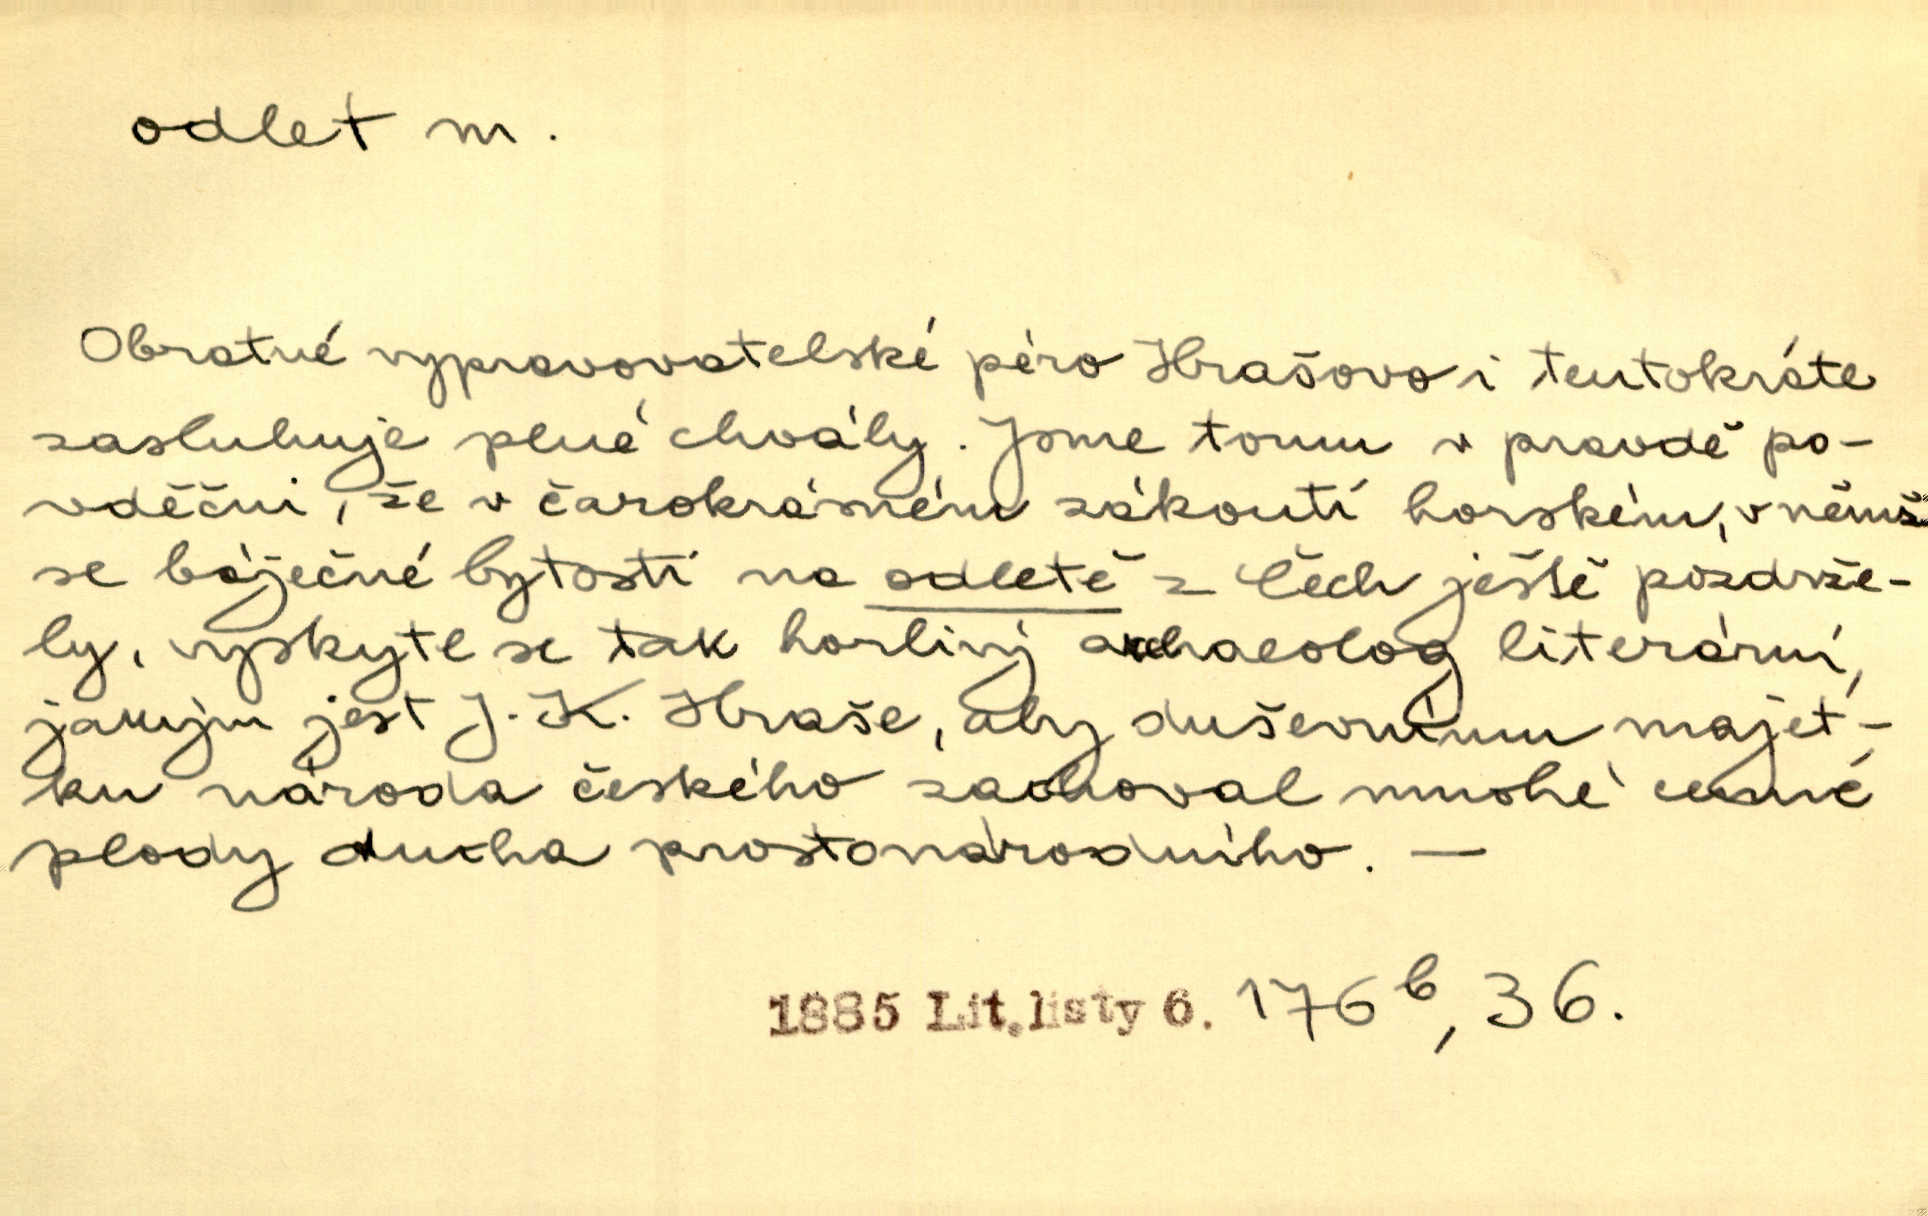 odlet m.
Obratné vypravovatelské péro Hrašovo i tentokráte
zasluhuje plné chvály. Jsme tomu v pravdě po-
vděčni, že v čarokrásném zákoutí horském, v němž
se báječné bytosti na odletě z Čech ještě pozdrže-
ly, vyskytl se tak horlivý archaeolog literární,
jakým jest J. K. Hraše, aby duševnímu majet-
ku národa českého zachoval mnohé cenné
plody ducha prostonárodního. —
1885 Lit. listy 6. 176 b, 36.